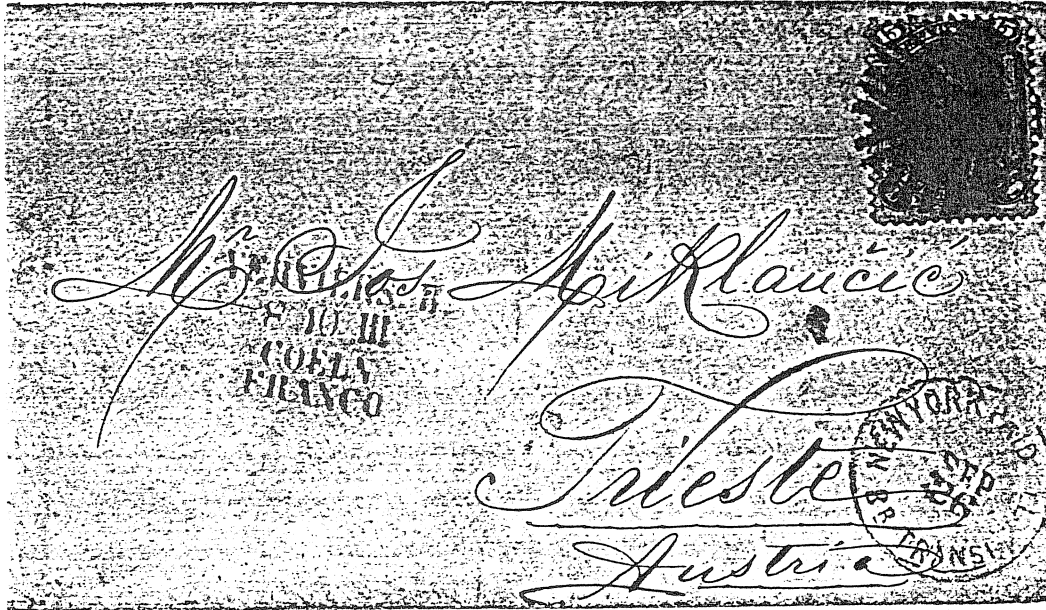 15 15
Mr. Jos. Miklaučić
VERVIERS
8 10 III
COELN
FRANCO
Trieste
Austria
NEW YORK PAID ALL
BR. TRANSIT